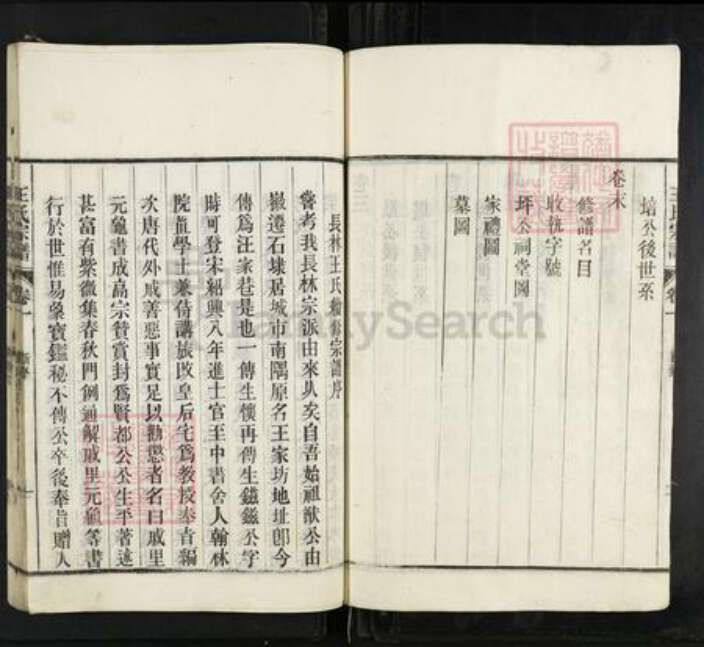 培公後世系
卷末
修譜名目
收執字號
坪公祠堂圖
家禮圖
墓圖
王氏宗譜
卷一
長林王氏續修宗譜序
嘗考我長林宗派由來久矣自吾始祖猷公由
嚴遷石埭居城市南隅原名王家坊地址即今
傳爲汪家巷是也一傳生懷再傳生鎡鎡公字
時可登宋紹興八年進士官至中書舍人翰林
院直學士兼侍講旅改皇后宅爲教授奉旨編
次唐代外戚善惡事實足以勸懲者名曰戚里
元龜書成高宗贊賞封爲賢都公公生平著述
甚富有紫微集春秋門例通解戚里元龜等書
行於世惟易象寶鑑秘不傳公卒後奉旨贈人
王氏宗譜
卷一
FamilySearch